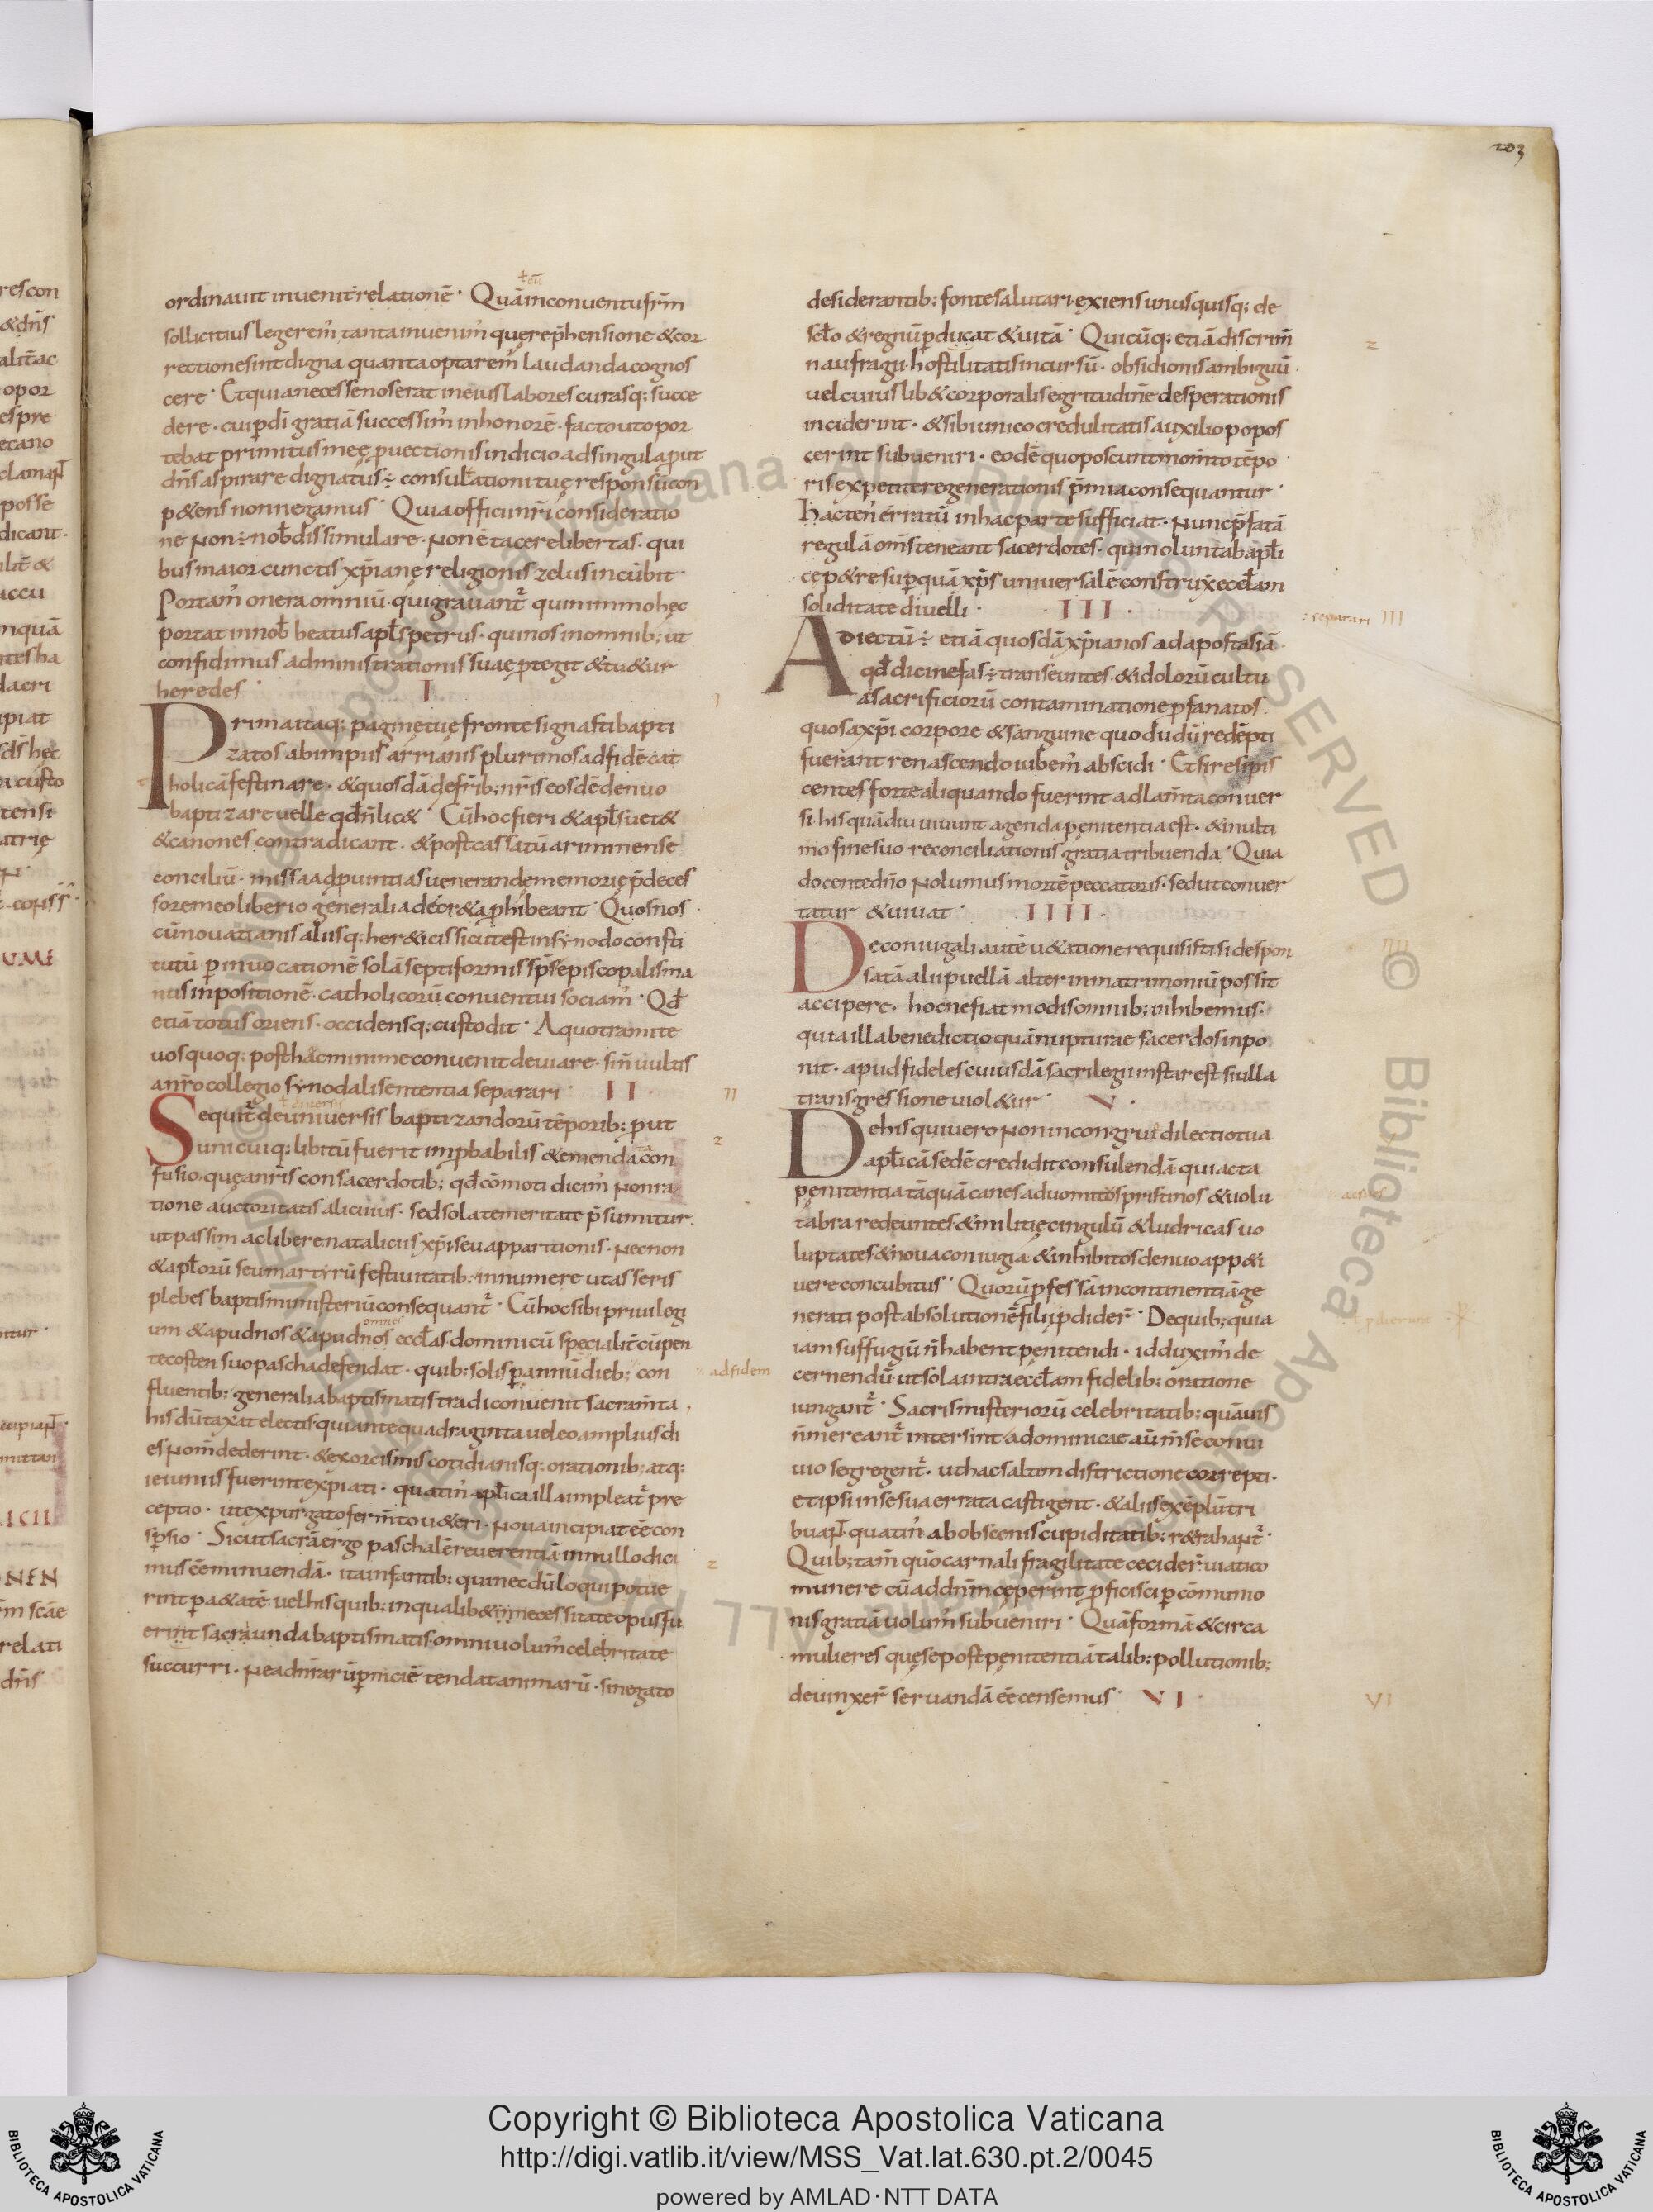 203
ordinauit inuenit relationē· Quā in conuentu frm̄
sollicitius legerem̄ tanta inuenim̄ quę rep̄hensione & cor
rectione sint digna quanta optarem̄ laudanda cognos
cere· Et quia necesse nos erat in eius labores curasq; succe
dere· cui ꝑ dī gratiā successim̄ in honorē· facto ut opor
tebat primitus meę ꝓuectionis indicio ad singula ꝓut
dn̄s aspirare dignatus ÷ consultationi tuę responsū con
p&ens non negamus· Quia officii nr̄i consideratio
ne non ÷ nob̄ dissimulare· non ē tacere libertas· qui
bus maior cunctis xp̄ianę religionis zelus incūbit·
Portam̄ onera omniū qui grauant̄ quinimmo hęc
portat in nob̄ beatus apl̄s petrus· qui nos in omnib; ut
confidimus administrationis suae ꝓtegit & tu&ur
heredes· I
Prima itaq; paginę tuę fronte signasti bapti
zatos ab impiis arrianis plurimos ad fidē cat
holicā festinare· & quosdā de fr̄ib; nr̄is eosdē denuo
baptizare uelle qd̄ n̄ lic&· Cū hoc fieri & apl̄s uet&
& canones contradicant· & post cassatū ariminense
conciliū· missa ad ꝓuintias uenerandę memorię p̄deces
sore meo liberio generalia decr&a ꝓhibeant· Quos nos
cū nouatianis aliisq; her&icis sicut est in synodo consti
tutū ꝑ inuocationē solā septiformis sp̄s episcopalis ma
nus inpositionē· catholicorū conuentui sociam̄· Qd̄
etiā totus oriens· occidensq; custodit· A quo tramite
uos quoq; posthāc minime conuenit deuiare· si n̄ uultis
a nr̄o collegio synodali sententia separari· II
Sequit̄ de uniuersis baptizandorū tēporib; ꝓut
unicuiq; libitū fuerit imꝓbabilis & emenda con
fusio· quę a nr̄is consacerdotib; qd̄ cōmoti dicim̄ non ra
tione auctoritatis alicuius· sed sola temeritate p̄sumitur·
ut passim ac libere nataliciis xp̄i seu apparitionis· necnon
& apl̄orū seu martyrū festiuitatib; innumere ut asseris
plebes baptismi misteriū consequant̄· Cū hoc sibi priuilegi
um & apud nos & apud nos omnes eccl̄as dominicū specialit̄ cū pen
tecosten suo pascha defendat· quib; solis ꝑ annū dieb; con
adfidem
fluentib; generalia baptismatis tradi conuenit sacram̄ta·
his dūtaxat electis qui ante quadraginta uel eo amplius di
es nom̄ dederint· & exorcismis cotidianisq; orationib; atq;
ieiuniis fuerint expiati· quatin̄ apl̄ica illa impleat̄ pre
ceptio· ut expurgato ferm̄to u&eri· noua incipiat eē con
sp̄sio· Sicut sacrā ergo paschalē reuerentiā in nullo dici
mus eē minuendā· ita infantib; qui necdū loqui potue
rint ꝑ a&atē· uel his quib; in qualib& necessitate opus fu
erint sacra unda baptismatis· omni uolum̄ celebritate
succurri· ne ad nr̄arū ꝑniciē tendat animarū· si negato
desiderantib; fonte salutari exiens unusquisq; de
scl̄o & regnū ꝑducat & uitā· Quicūq; etiā discrim̄
naufragii· hostilitatis incursū· obsidionis ambiguū·
uel cuiuslib& corporalis egritudin̄e desperationis
inciderint· & sibi unico credulitatis auxilio popos
cerint subueniri· eodē quo poscunt mom̄to tēpo
ris expetite regenerationis p̄mia consequantur·
Hacten̄ erratū in hac parte sufficiat· nunc p̄fatā
regulā om̄s teneant sacerdotes· qui nolunt ab apl̄i
cę p&re sup̄ quā xp̄s uniuersalē construx̄ eccl̄am
soliditate diuelli· III·
separari III
Adiectū ÷ etiā quosdā xp̄ianos ad apostasiā·
qd̄ dici nefas ÷ transeuntes· & idolorū cultu
a sacrificiorū contaminatione ꝓfanatos
quos a xp̄i corpore & sanguine quo dudū redēpti
fuerant renascendo iubem̄ abscidi· Et si resipis
centes forte aliquando fuerint ad lam̄ta conuer
si· his quādiu uiuunt agenda penitentia est· & in ulti
mo fine suo reconciliationis gratia tribuenda· Quia
docente dn̄o nolumus mortē peccatoris· sed ut conuer
tatur & uiuat· IIII·
IIII
De coniugali autē u&atione requisisti si despon
satā alii puellā alter in matrimoniū possit
accipere· hoc ne fiat modis omnib; inhibemus·
quia illa benedictio quā nupturae sacerdos inpo
nit· apud fideles cuiusdā sacrilegii instar est si ulla
transgressione uiol&ur· V·
De his qui uero non incongrue dilectio tua
apl̄icā sedē credidit consulendā qui acta
penitentia tāquā canes ad uomitos pristinos & uolu
tabra redeuntes & militię cingulū & ludricas uo
luptates & noua coniugia· & inhibitos denuo app&i
uere concubitus· Quorū ꝓfessā incontinentiā ge
nerati post absolutionē filii ꝓdider̄· De quib; quia
iam suffugiū n̄ habent penitendi· id duxim̄ de
cernendū ut sola intra eccl̄am fidelib; oratione
iungant̄· Sacris misteriorū celebritatib; quāuis
n̄ mereant̄ intersint· a dominicae aū m̄se conui
uio segregent̄· ut hac saltim districtione correpti·
et ipsi in se sua errata castigent· & aliis exēplū tri
buant· quatin̄ ab obscenis cupiditatib; r&rahant̄·
Quib; tam̄ quo carnali fragilitate cecider̄ uiatico
munere cū ad dn̄m cęperint ꝓficisci ꝑ cōmunio
nis gratiā uolum̄ subueniri· Quā formā & circa
mulieres quę se post penitentiā talib; pollutionib;
deuinxer̄ seruandā eē censemus· VI·
VI
Copyright © Biblioteca Apostolica Vaticana
http://digi.vatlib.it/view/MSS_Vat.lat.630.pt.2/0045
powered by AMLAD·NTT DATA
BIBLIOTECA APOSTOLICA VATICANA
BIBLIOTECA APOSTOLICA VATICANA